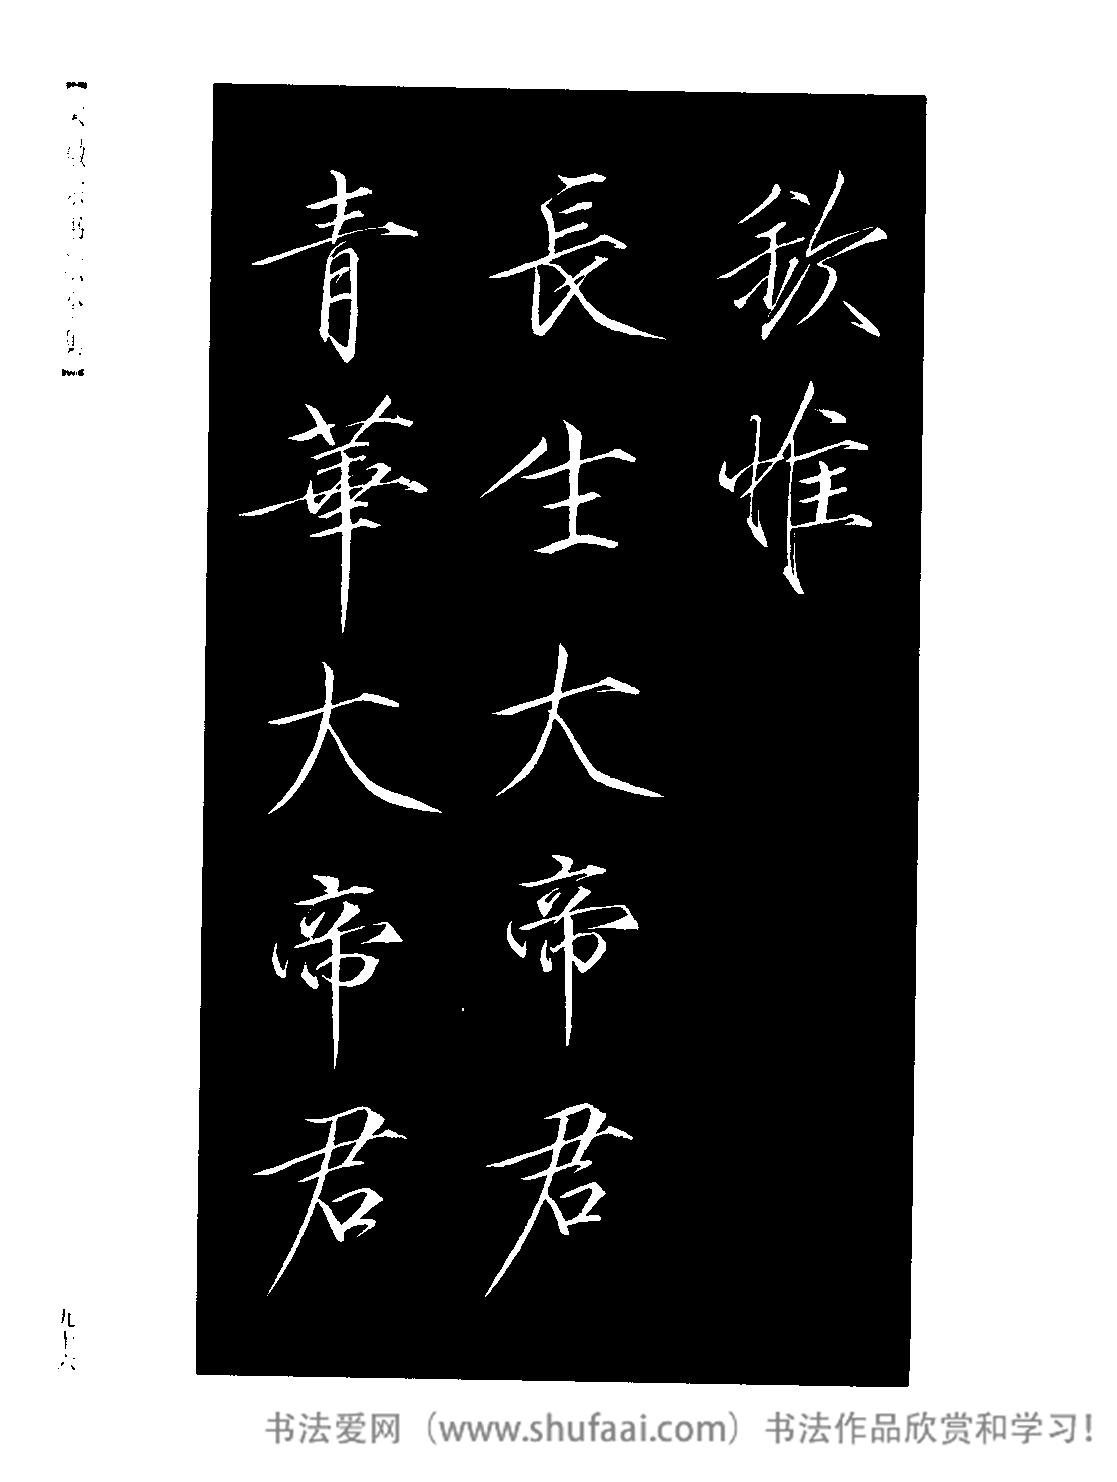 欽惟
長生大帝君
青華大帝君
九十六
书法爱网（www.shufaai.com）书法作品欣赏和学习！